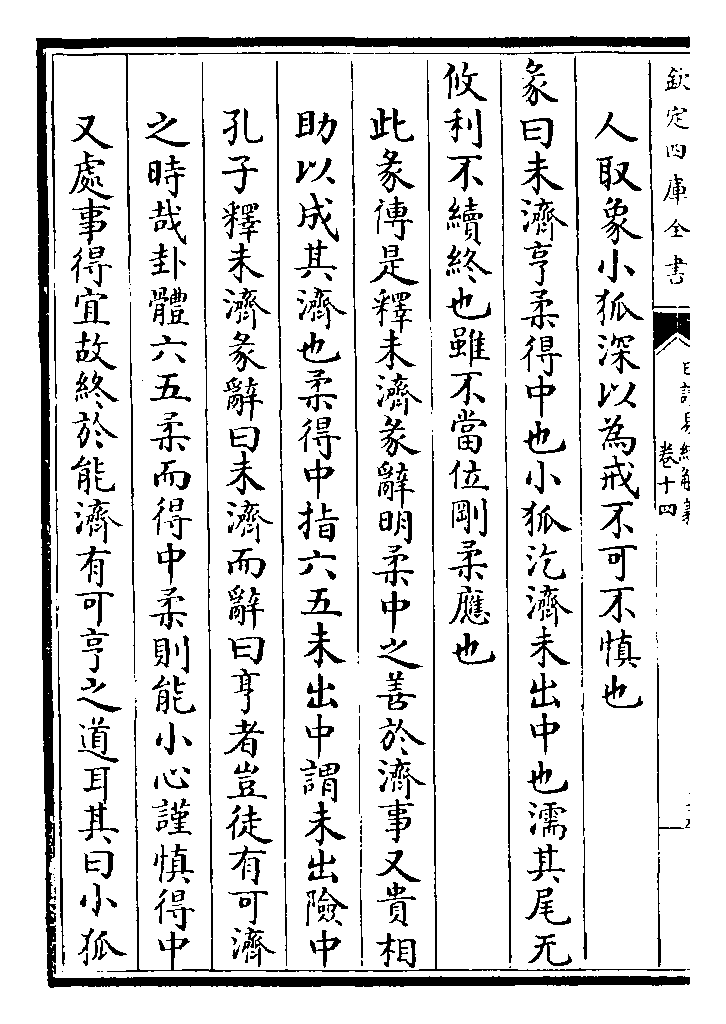 欽定四庫全書
日講易經解義
卷十四
人取象小狐深以為戒不可不慎也
彖曰未濟亨柔得中也小狐汔濟未出中也濡其尾无
攸利不續終也雖不當位剛柔應也
此彖傳是釋未濟彖辭明柔中之善於濟事又貴相
助以成其濟也柔得中指六五未出中謂未出險中
孔子釋未濟彖辭曰未濟而辭曰亨者豈徒有可濟
之時哉卦體六五柔而得中柔則能小心謹慎得中
又處事得宜故終於能濟有可亨之道耳其曰小狐